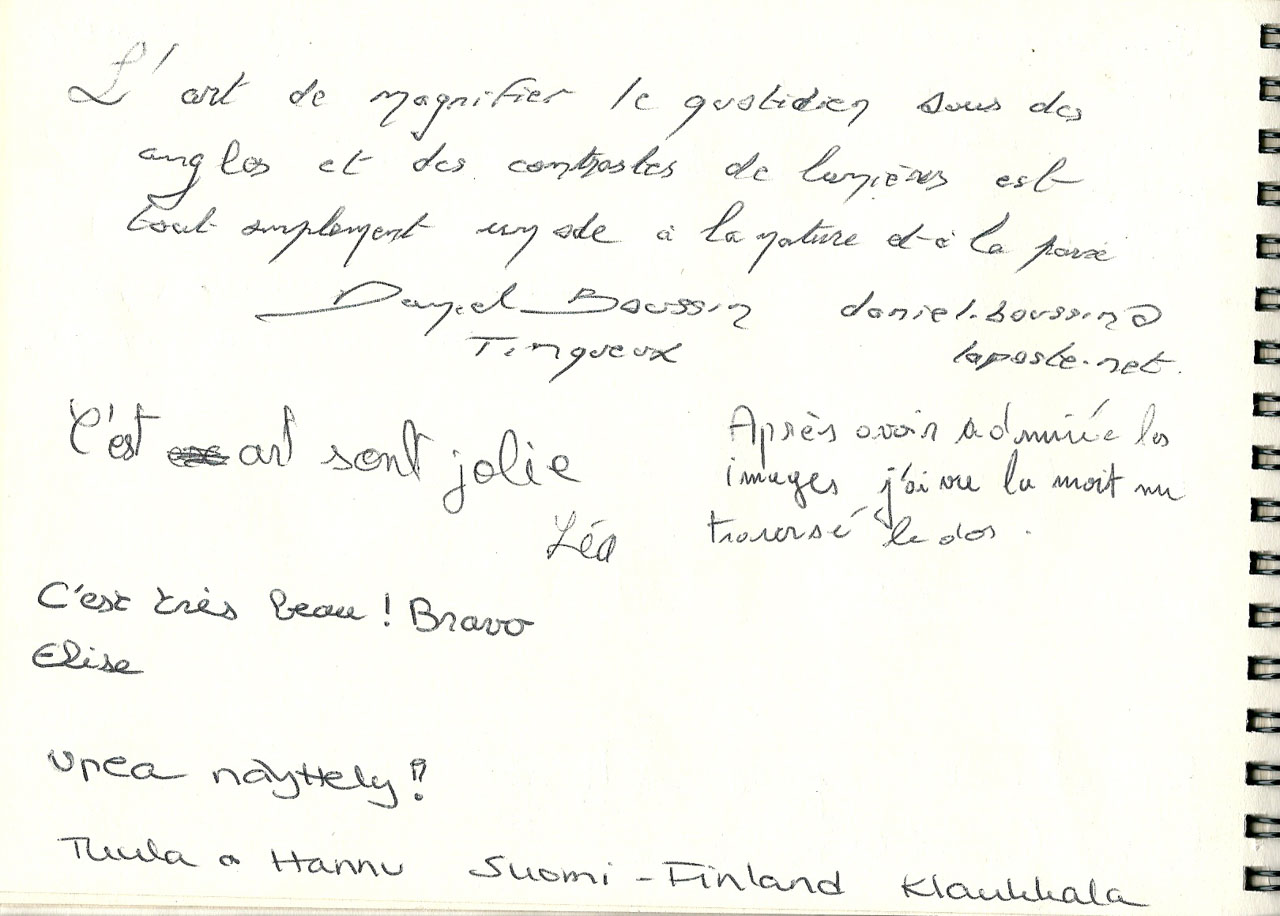 L'art de magnifier le quotidien sous des
angles et des contrastes de lumières est
tout simplement un ode à la nature et à la paix
Daniel Boussin daniel.boussin@
Tinqueux laposte.net.
C'est art sont jolie
Léa
Après avoir admirée les
images j'ai vu la moit nu
traversé le dos.
C'est très beau ! Bravo
Elise
Upea näyttely !
Tuula a Hannu Suomi - Finland Klaukkala